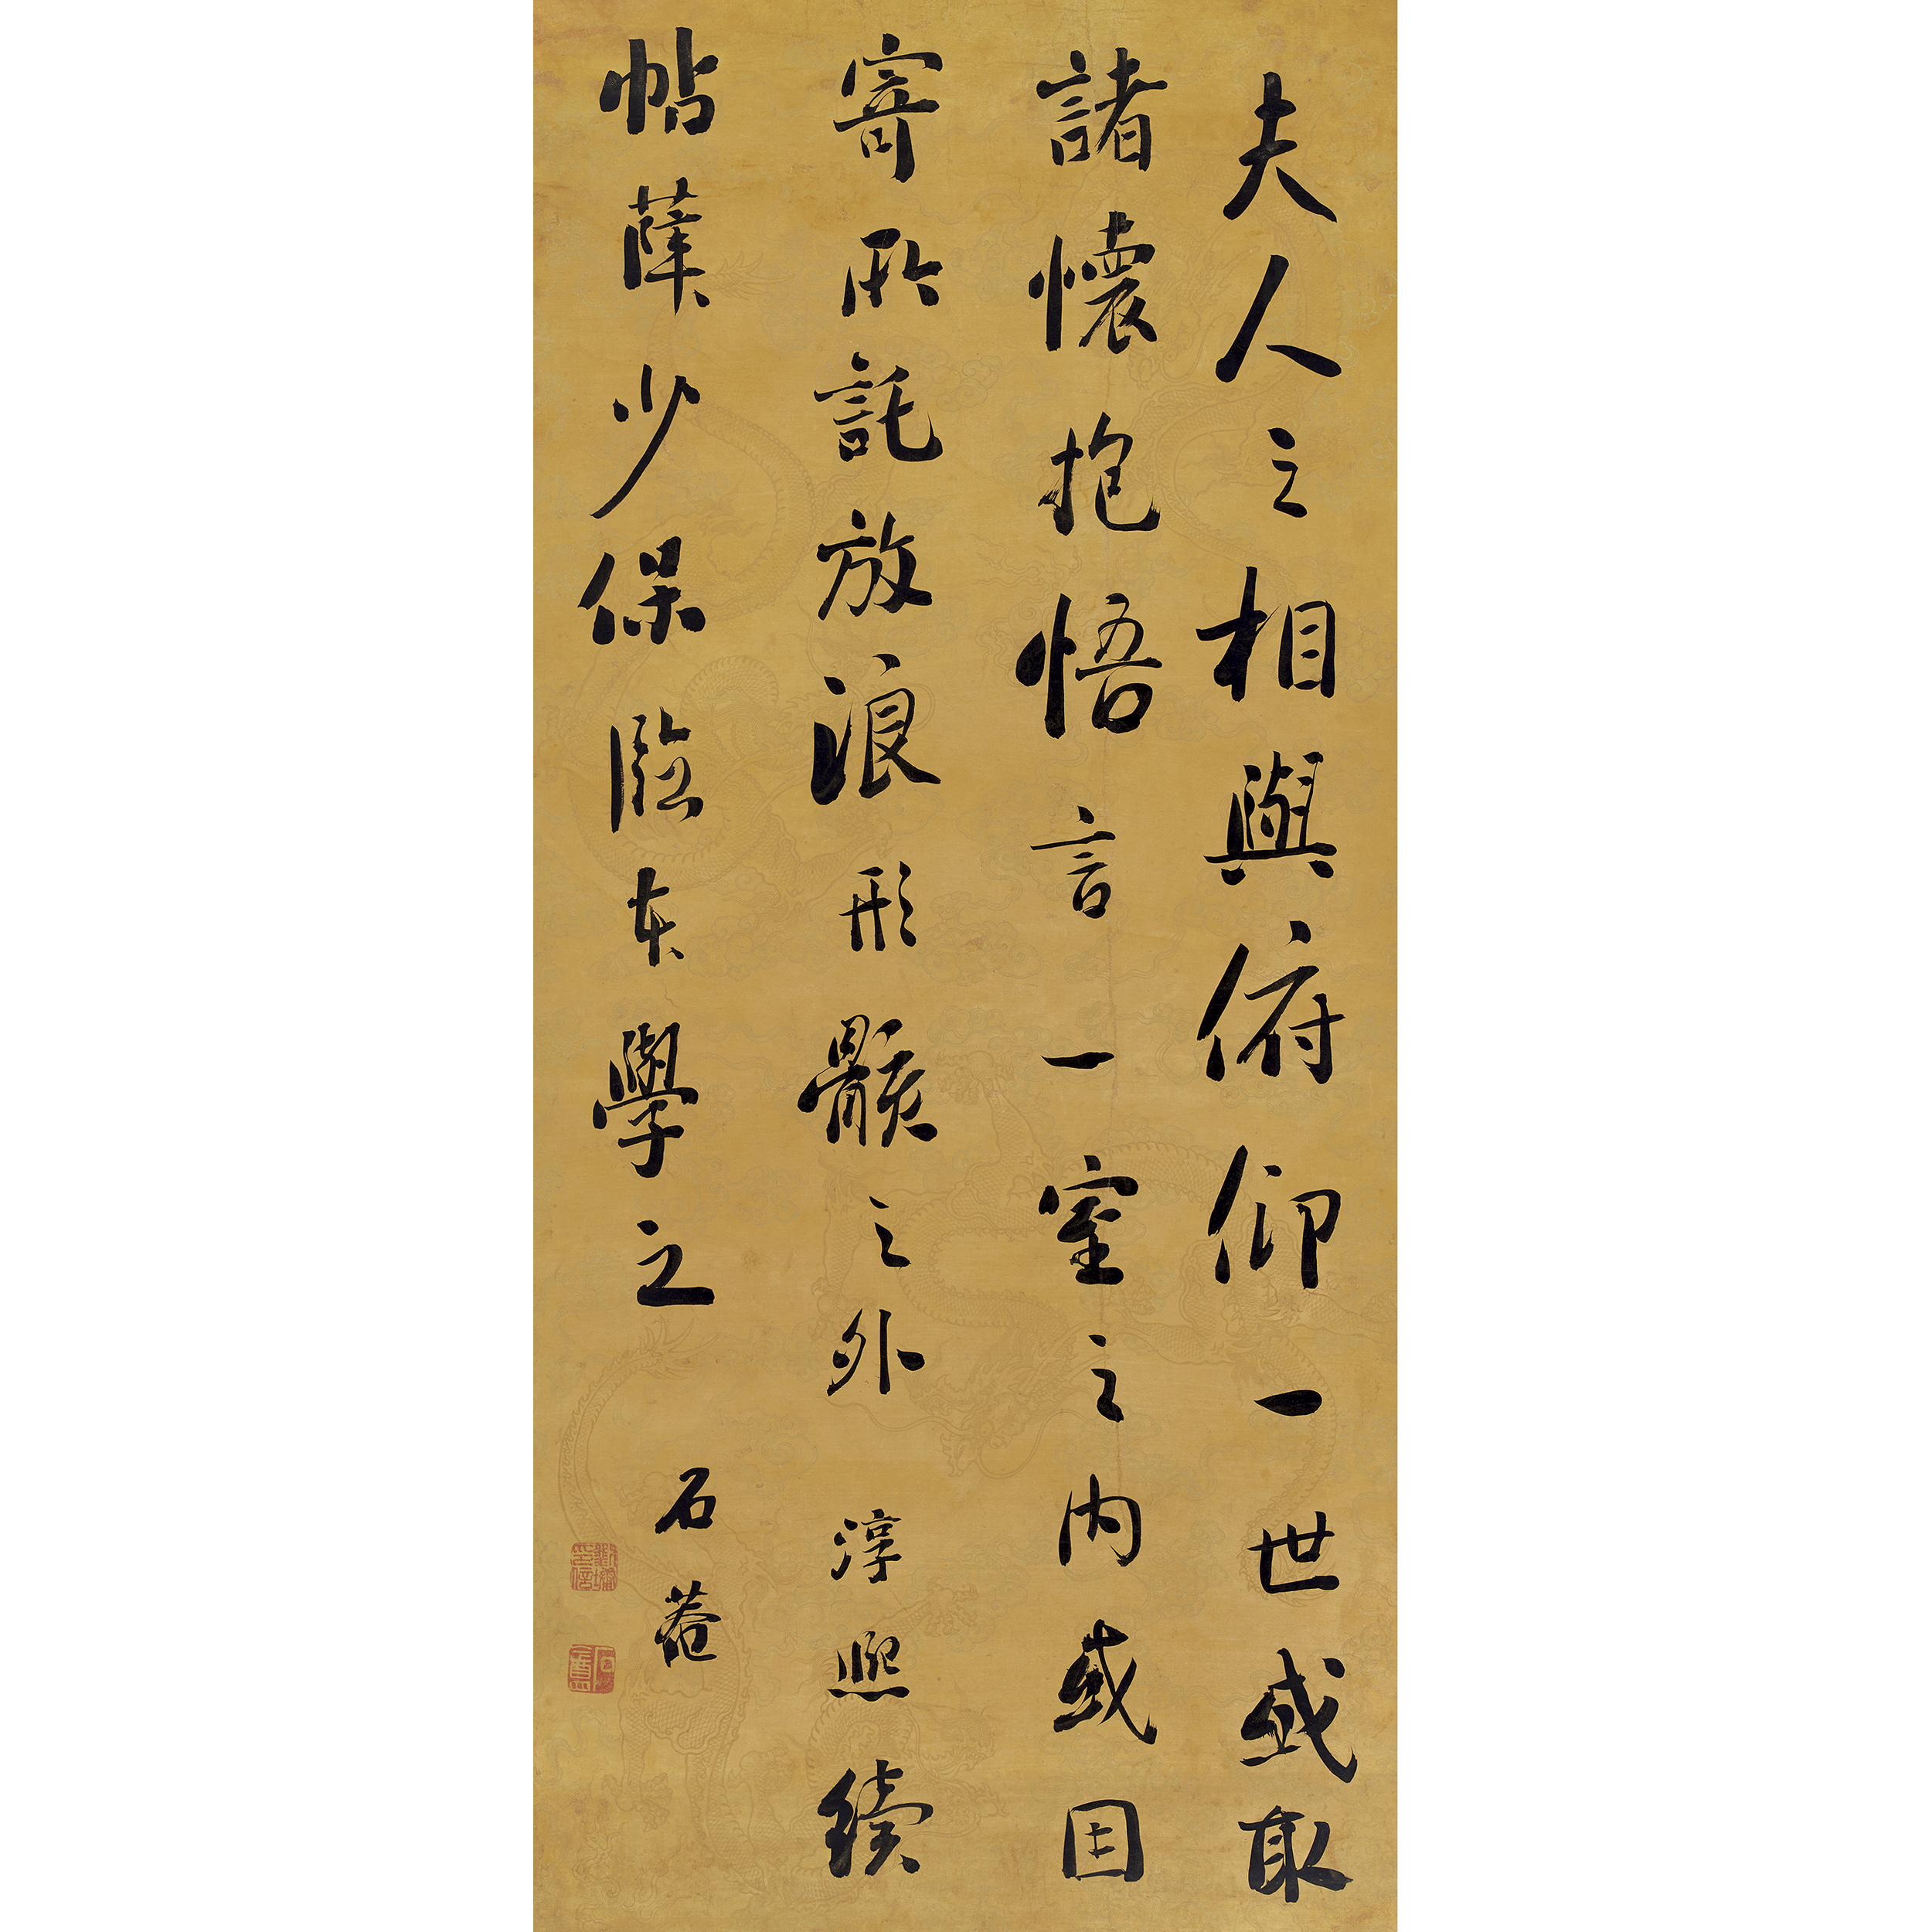 夫人之相與俯仰一世或取
諸懷抱悟言一室之內或因
寄所託放浪形骸之外 淳熙續
帖薛少保臨本學之
石菴